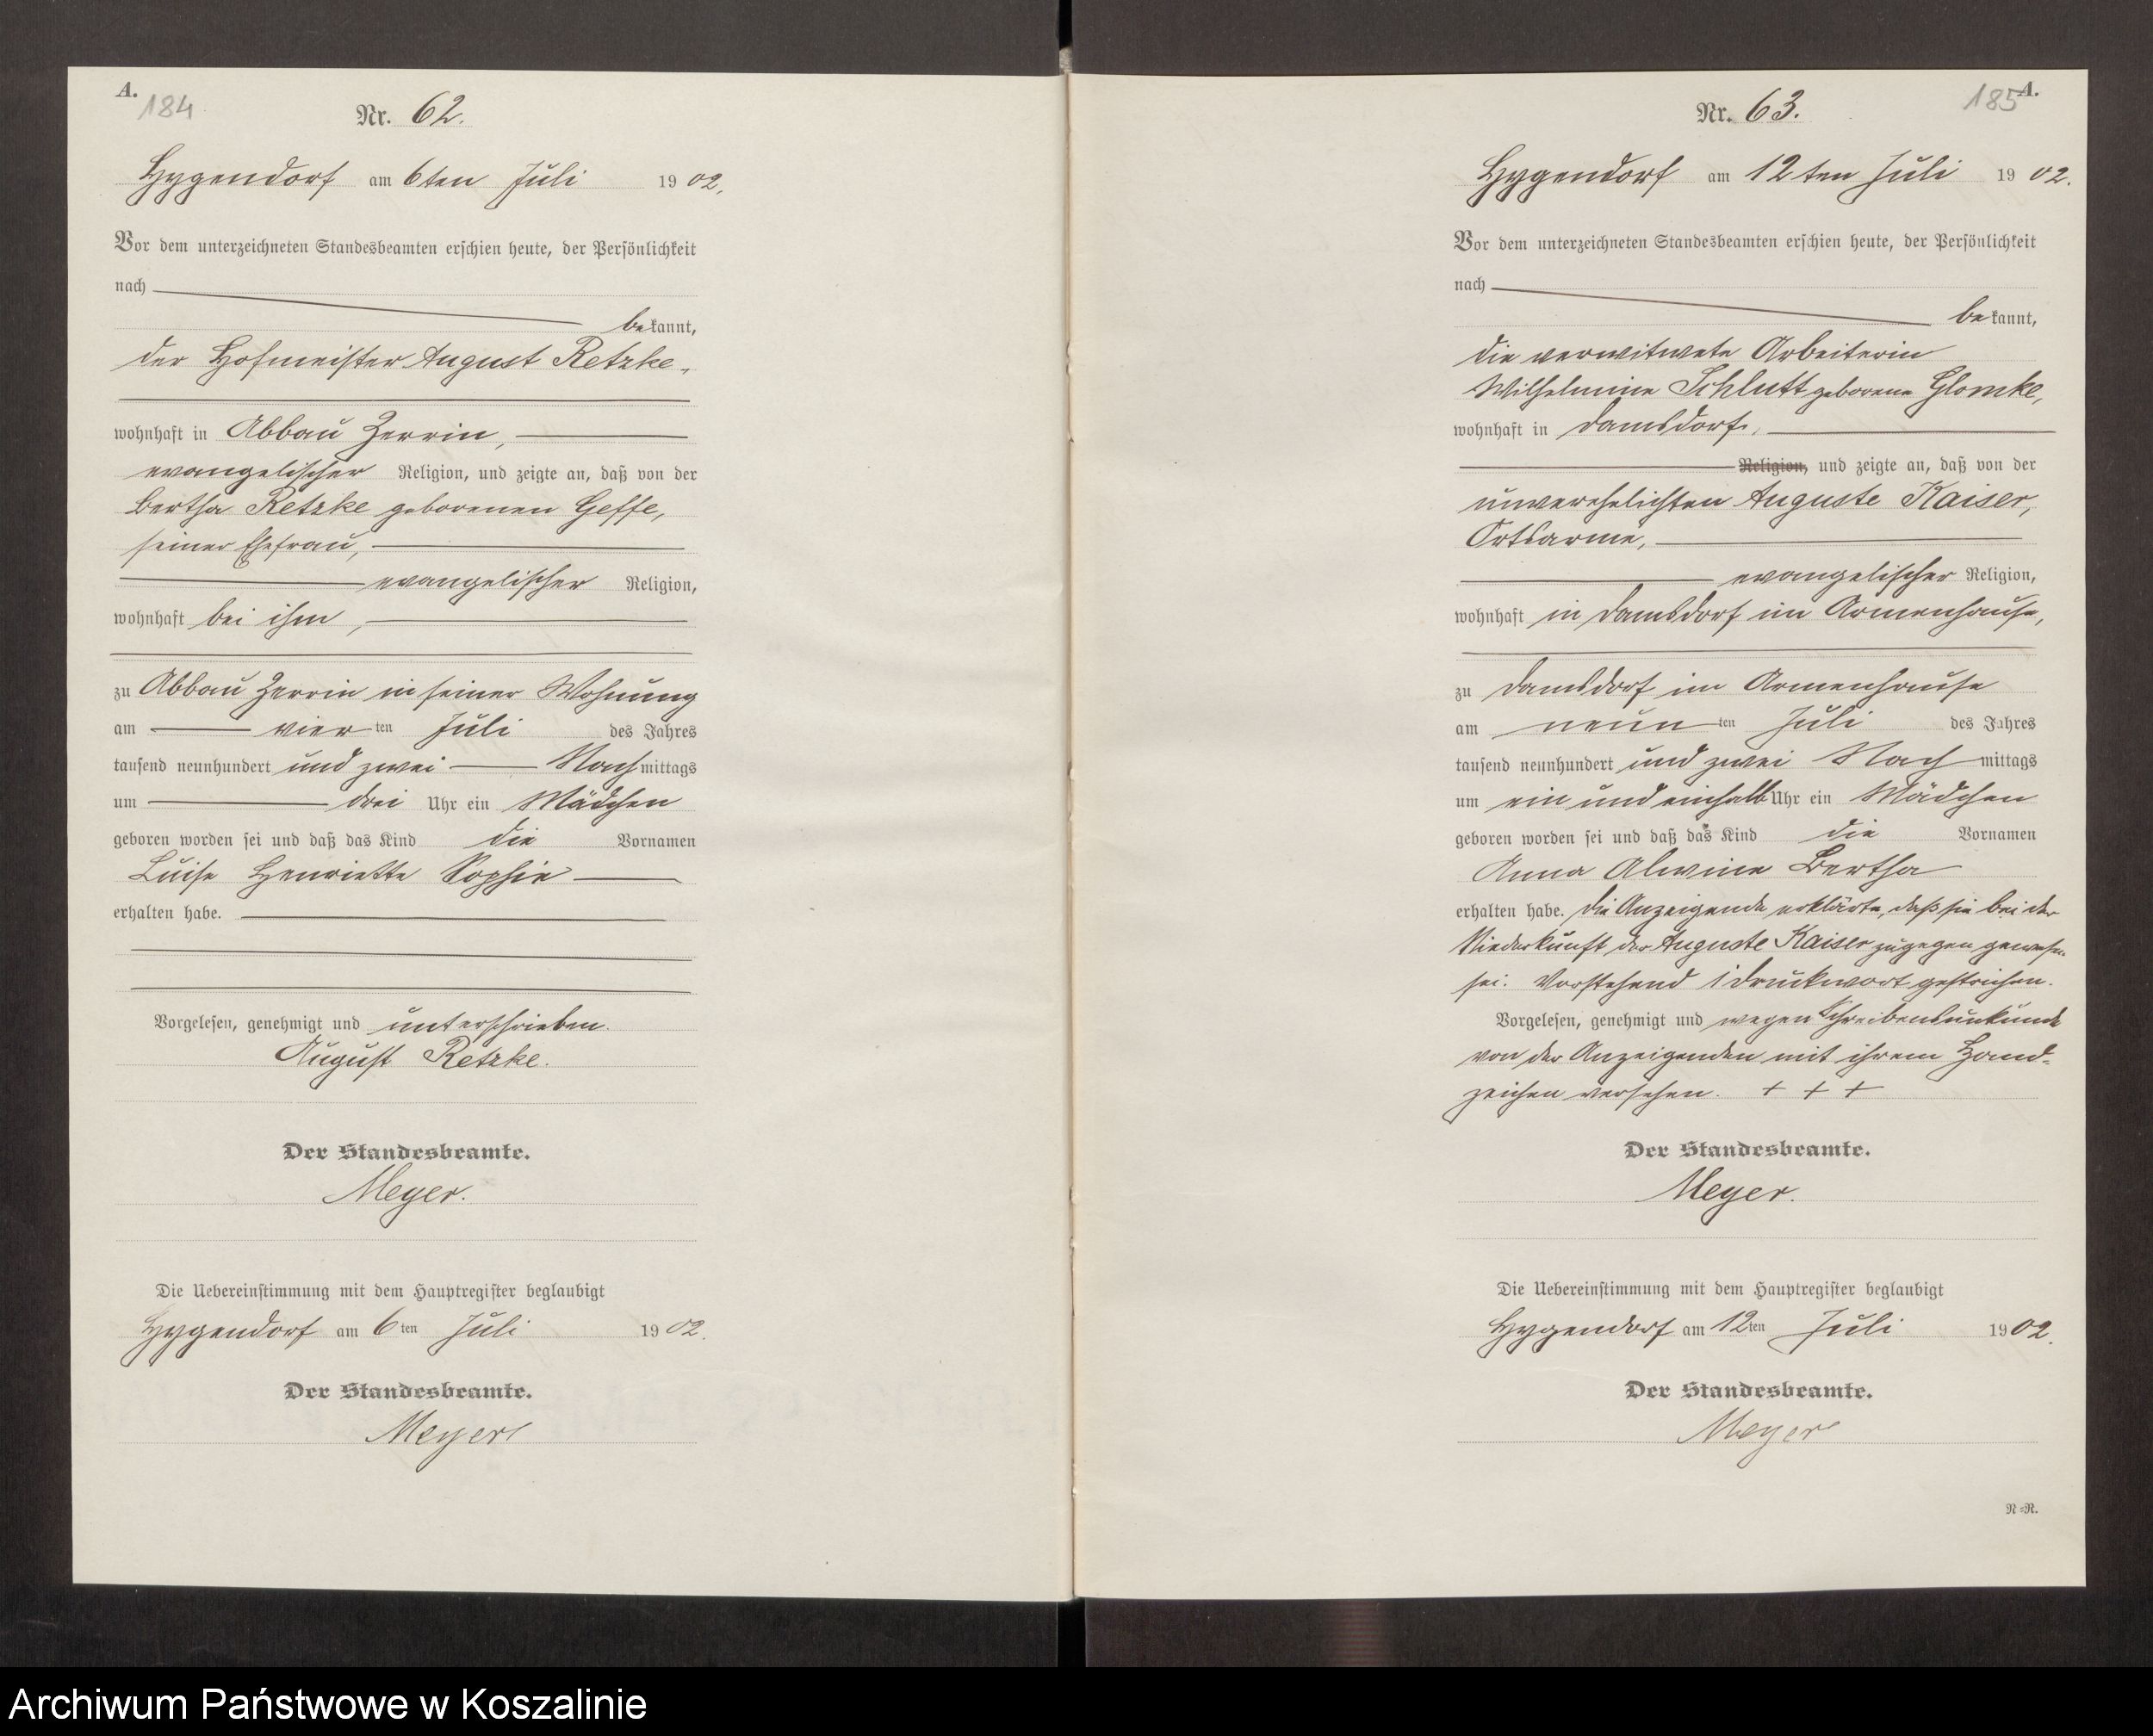 A.
184
Nr. 62.
Hygendorf am 6ten Juli 1902.
Vor dem unterzeichneten Standesbeamten erschien heute, der Persönlichkeit
nach
bekannt,
der Hofmeister August Retzke,
wohnhaft in Abbau Zerrin,
evangelischer Religion, und zeigte an, daß von der
Bertha Retzke geborenen Geffe,
seiner Ehefrau,
evangelischer Religion,
wohnhaft bei ihm,
zu Abbau Zerrin in seiner Wohnung
am vierten Juli des Jahres
tausend neunhundert und zwei Nachmittags
um drei Uhr ein Mädchen
geboren worden sei und daß das Kind die Vornamen
Luise Henriette Sophie
erhalten habe.
Vorgelesen, genehmigt und unterschrieben.
August Retzke.
Der Standesbeamte.
Meyer.
Die Uebereinstimmung mit dem Hauptregister beglaubigt
Hygendorf am 6ten Juli 1902.
Der Standesbeamte.
Meyer
A.
185
Nr. 63.
Hygendorf am 12ten Juli 1902.
Vor dem unterzeichneten Standesbeamten erschien heute, der Persönlichkeit
nach
bekannt,
die verwitwete Arbeiterin
Wilhelmine Schlutt geborene Glomke,
wohnhaft in Damsdorf,
Religion, und zeigte an, daß von der
unverehelichten Auguste Kaiser,
Ortsarme,
evangelischer Religion,
wohnhaft in Damsdorf im Armenhause,
zu Damsdorf im Armenhause
am neunten Juli des Jahres
tausend neunhundert und zwei Nachmittags
um ein und einhalb Uhr ein Mädchen
geboren worden sei und daß das Kind die Vornamen
Anna Alwine Bertha
erhalten habe. Die Anzeigende erklärte, daß sie bei der
Niederkunft der Auguste Kaiser zugegen gewesen
sei. Vorstehend 1 Druckwort gestrichen.
Vorgelesen, genehmigt und wegen Schreibensunkunde
von der Anzeigenden mit ihrem Hand-
zeichen versehen. + + +
Der Standesbeamte.
Meyer.
Die Uebereinstimmung mit dem Hauptregister beglaubigt
Hygendorf am 12ten Juli 1902.
Der Standesbeamte.
Meyer
N=R.
Archiwum Państwowe w Koszalinie